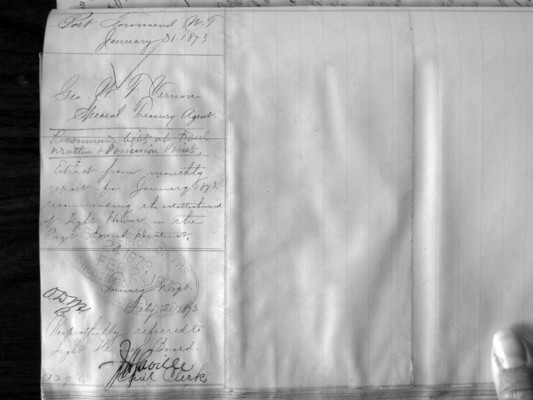 Port Townsend W.T.
January 31. 1873
Geo. W. F. Vernon
Special Treasury Agent.
Recommends light at
Extract from monthly
report for January 1873,
recommending the establishment
of Light House in the
Puget Sound District.
Treasury Dept.
Feby. 21. 1873
Respectfully referred to
Light House Board.
JH Saville
Chief Clerk